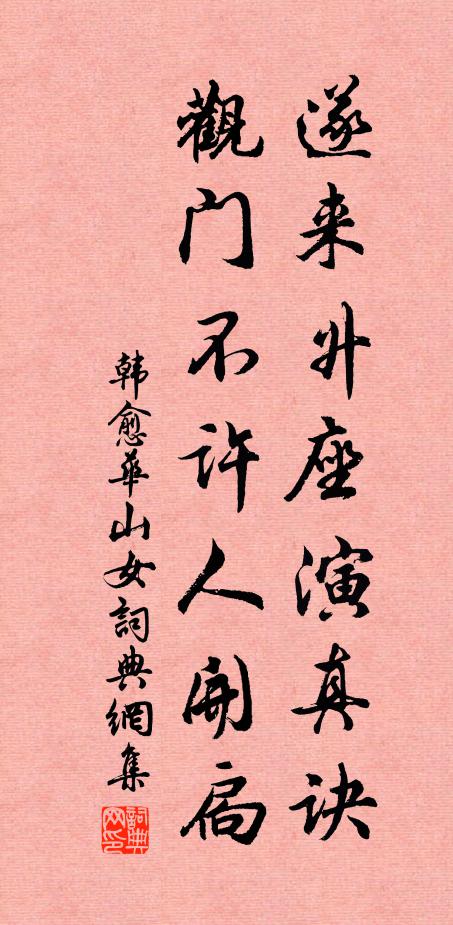 遂来升座演真诀
觀门不许人開扃
韩愈華山女詞典網集
詞典网印